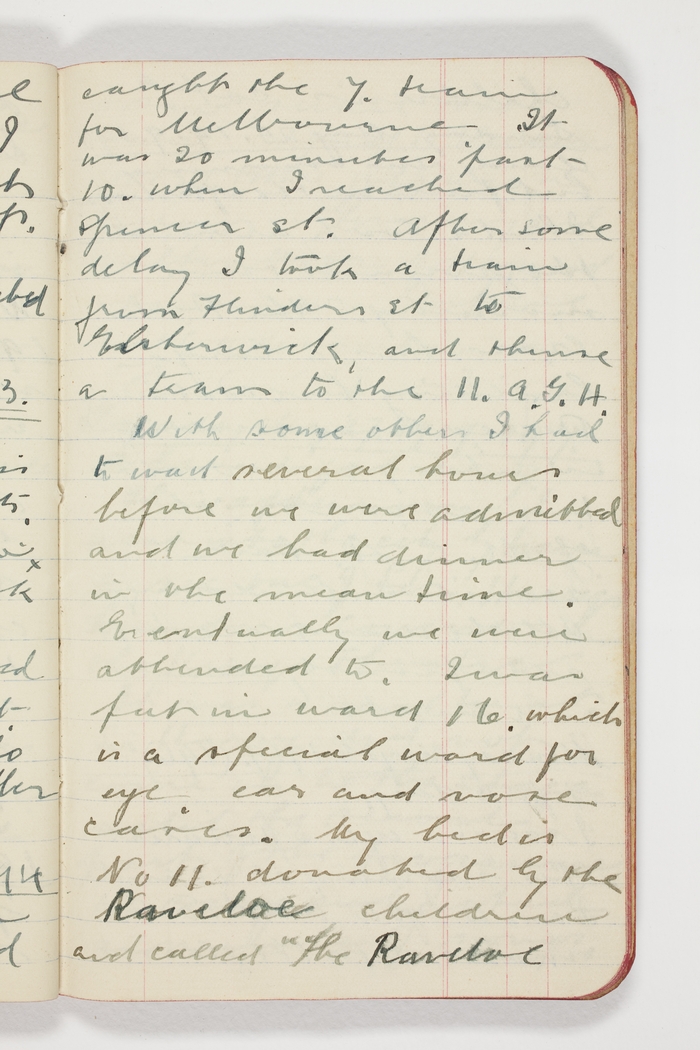 caught the 7. train
for Melbourne It
was 20 minutes past
10. when I reached
Spencer st. After some
delay I took a train
from Flinders st to
Elsternwick, and thense
a tram to the 11. A.G.H.
With some others I had
to wait several hours
before we were admitted
and we had dinner
in the mean time.
Eventually we were
attended to. I was
put in ward 16. which
is a special ward for
eye ear and nose
cases. My bed is
No 11. donated by the
Raveloe children
and called "The Raveloe